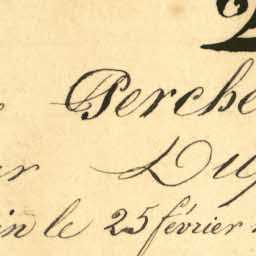 2
Perche
er Dup
in le 25 février